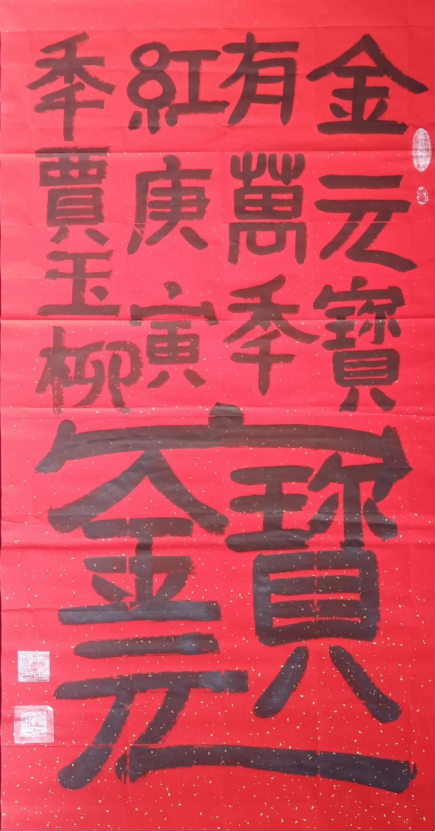 金元寶
有萬秊
紅庚寅
秊賈玉柳
金元寶